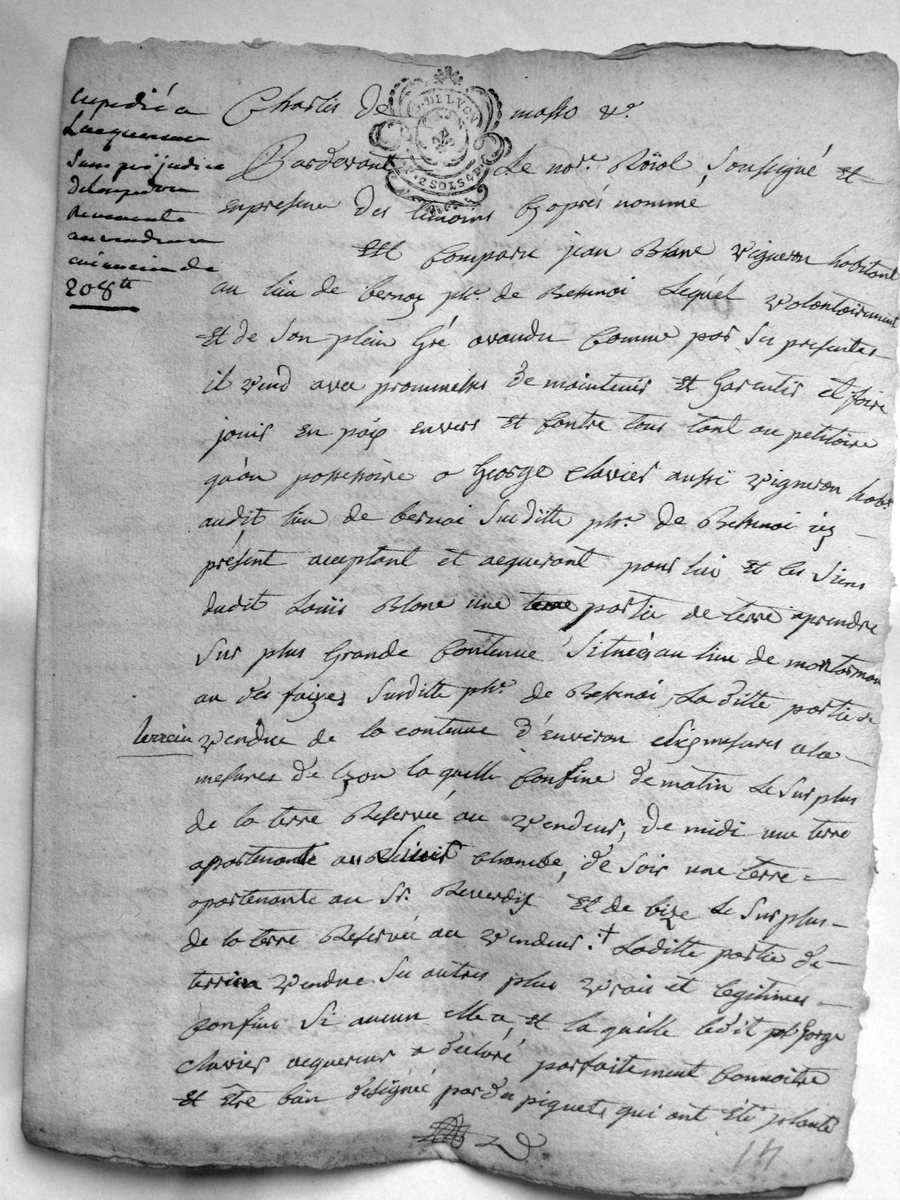 Expedié a
Lacquereur
sans prejudice
208ᵗᵗ
Charles De masso &ᵃ
G. DE LYON
2 SOLS 4 D
Pardevant Le noʳᵉ Roïal soussigné Et
en presence Des temoins Cy après nommé
Est Comparu jean Blanc Vigneron habitant
au lieu de bernay phᵉ. de Bessenai Lequel Volontairement
Et de Son plein Gré a vandu Comme par Ses presentes
il Vend avec prommesses De maintenir Et Garentir Et faire
jouir En paix Envers Et Contre tous tant au petitoire
qu'au possessoire a George Clavier aussi Vigneron habᵗ.
audit lieu de bernai Surditte phᵉ. de Bessenai icy
présent acceptant et acquerant pour lui Et les Siens
dudit Louis Blanc une partie de terre aprendre
Sur plus Grande Contenue Située au lieu de
au Des faizes Surditte phᵉ. de Bessenai, La ditte partie de
terrein
Vendue de la contenue D'environ mesures a la
mesures de Lyon laquelle Confine De matin Le Surplus
de la terre Reservée au Vendeur, De midi une terre
apartenante au Chambe, De Soir une terre
apartenante au Sʳ. Reverdy Et de bize Le Surplus
de la terre Reservée au Vendeur.† Laditte partie De
terrein Vendue Ses autres plus Vrais et legitimes
Confins Si aucun Elle a, Et la quelle ledit George
Clavier acquereur a déclaré parfaitement Connoitre
Et Etre bien Designée par Des piquets qui ont Eté plantés
14